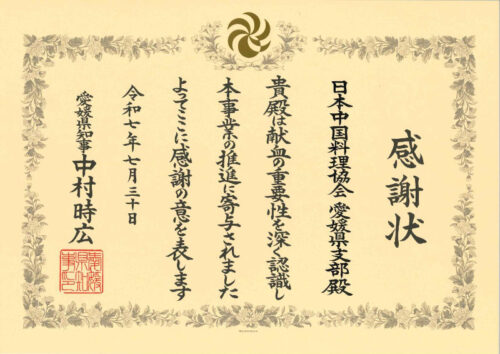 感謝状
日本中国料理協会 愛媛県支部 殿
貴殿は献血の重要性を深く認識し
本事業の推進に寄与されました
よってここに感謝の意を表します
令和七年七月三十日
愛媛県知事 中村時広
愛媛
県知
事印